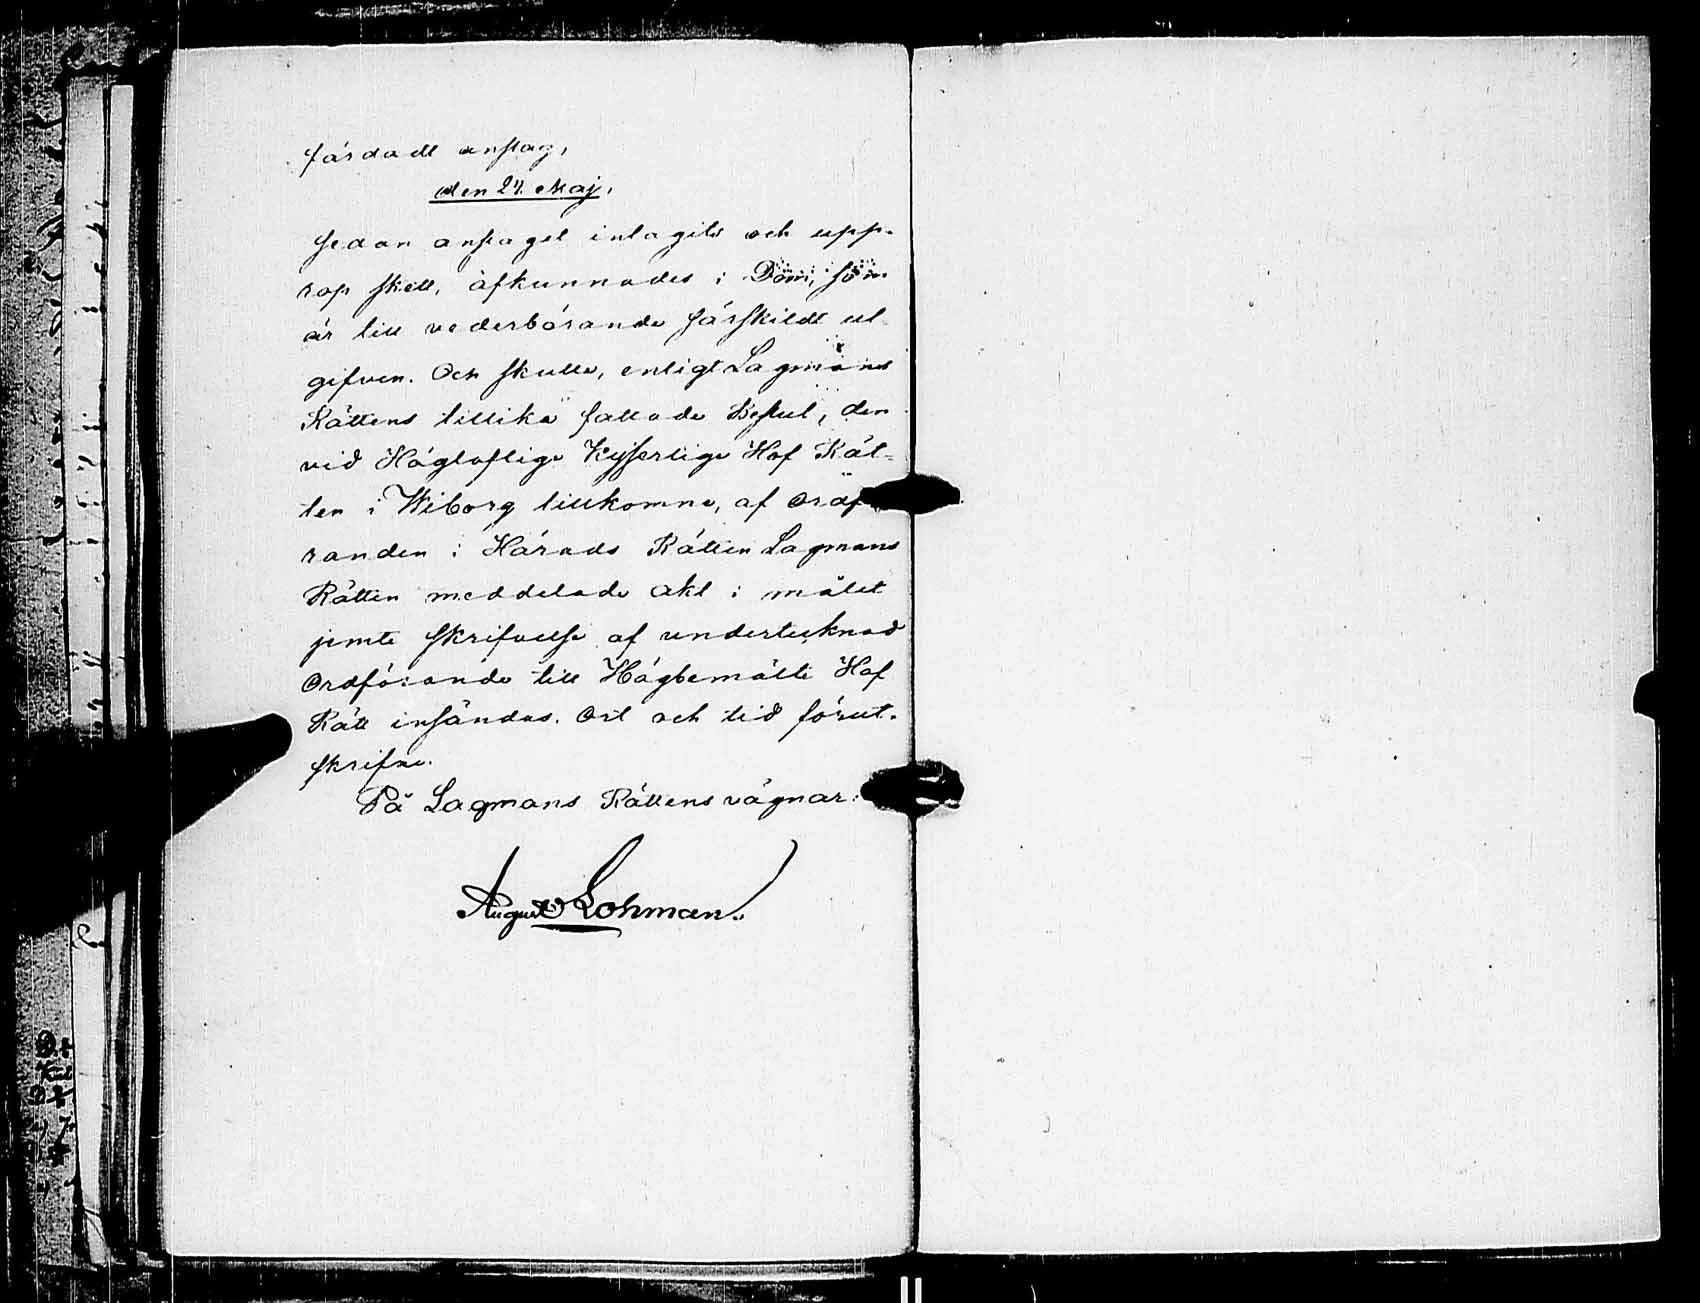 färdadt anslag,
den 27. Maj,
Sedan anslaget intagits och upp-
rop skett, afkunnades i Dom, som
är till vederbörande särskildt ut-
gifven. Och skulle, enligt Lagmans
Rättens tillika fattade Beslut, den
vid Höglofliga Kejserliga Hof Rät-
ten i Wiborg tillkomne, af Ordfö
randen i Härads Rätten Lagmans
Rätten meddelade akt i målet
jemte skrifvelse af undertecknad
Ordförande till Högbemälte Hof
Rätt insändas. Ort och tid förut-
skrifne.
På Lagmans Rättens vägnar:
August Lohman.